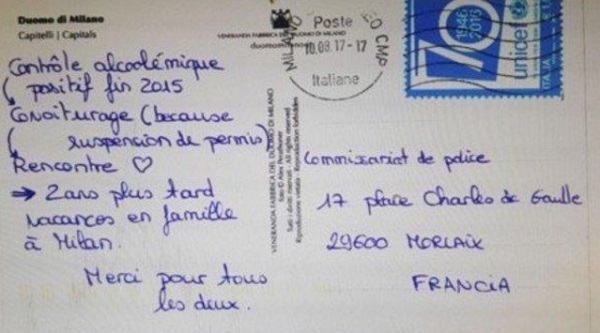 Duomo di Milano
Capitelli | Capitals
Contrôle alcoolémique
positif fin 2015
Covoiturage (because
suspencion de permis)
Rencontre ♡
→ 2 ans plus tard
vacances en famille
à Milan.
Merci pour tous
les deux.
VENERANDA FABBRICA DEL DUOMO DI MILANO
duomomilano
VENERANDA FABBRICA DEL DUOMO DI MILANO
Tutti i diritti riservati - All rights reserved
Riproduzione vietata - Reproduction forbidden
MILANO
CMP
Poste
10.08.17-17
Italiane
70
1946
2016
unicef
ITALIA
Commissariat de police
17 place Charles de Gaulle
29600 MORLAIX
FRANCIA